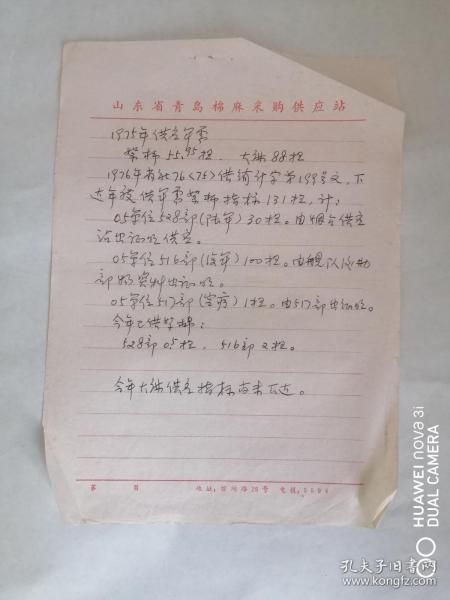 山东省青岛棉麻采购供应站
1975年供应军需
絮棉55.95担. 大麻88担
1976年省社76〈75〉供销计字第199号文,下
达年度供军需絮棉指标131担,计:
05单位528部(陆军)30担。由烟台供应
站出证明供应。
05单位516部(海军)100担。由舰队后勤
部物资科出证明。
05单位517部(空疗)1担。由517部出证明。
今年已供絮棉:
528部05担.516部2担。
今年大麻供应指标尚未下达。
第 页
地址:馆陶路26号 电报:5594
HUAWEI nova 3i
DUAL CAMERA
孔夫子旧书网
www.kongfz.com